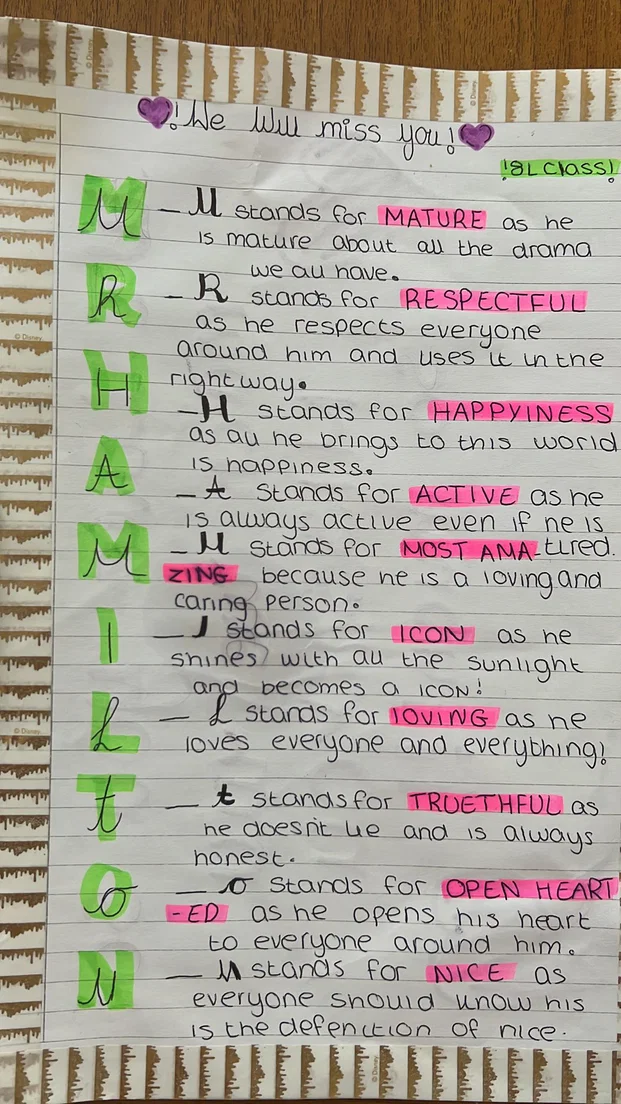 !We Will miss you!
!8L Class!
M – M stands for MATURE as he
is mature about all the drama
we all have.
R – R stands for RESPECTFUL
as he respects everyone
around him and uses it in the
right way.
H – H stands for HAPPYINESS
as all he brings to this world
is happiness.
A – A stands for ACTIVE as he
is always active even if he is
tired.
M – M stands for MOST AMA-
ZING because he is a loving and
caring person.
I – I stands for ICON as he
shines with all the sunlight
and becomes a ICON!
L – L stands for lOVING as he
loves everyone and everything!
T – t stands for TRUETHFUL as
he doesn't lie and is always
honest.
O – o stands for OPEN HEART
-ED as he opens his heart
to everyone around him.
N – N stands for NICE as
everyone should know his
is the defenition of nice.
© Disney
© Disney
© Disney
© Disney
© Disney